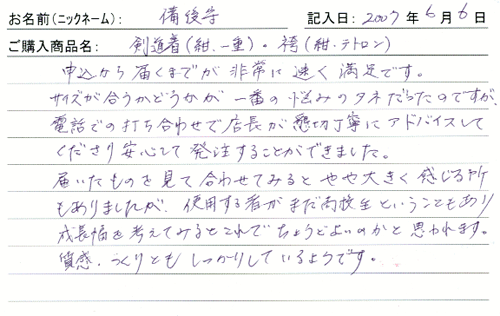 お名前(ニックネーム): 備後守 記入日: 2007年6月6日
ご購入商品名: 剣道着(紺.一重)・袴(紺.テトロン)
申込から届くまでが非常に速く満足です。
サイズが合うかどうかが一番の悩みのタネだったのですが、
電話での打ち合わせで店長が懇切丁寧にアドバイスして
くださり安心して発注することができました。
届いたものを見て合わせてみるとやや大きく感じる所
もありましたが、使用する者がまだ高校生ということもあり
成長幅を考えてみるとこれでちょうどよいのかと思われます。
質感、つくりともしっかりしているようです。